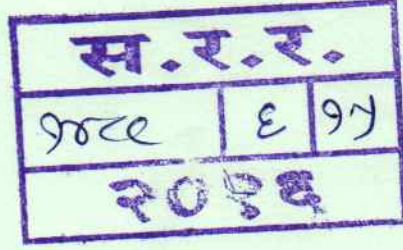 स.र.र.
१४८९ ६ १५
२०१६